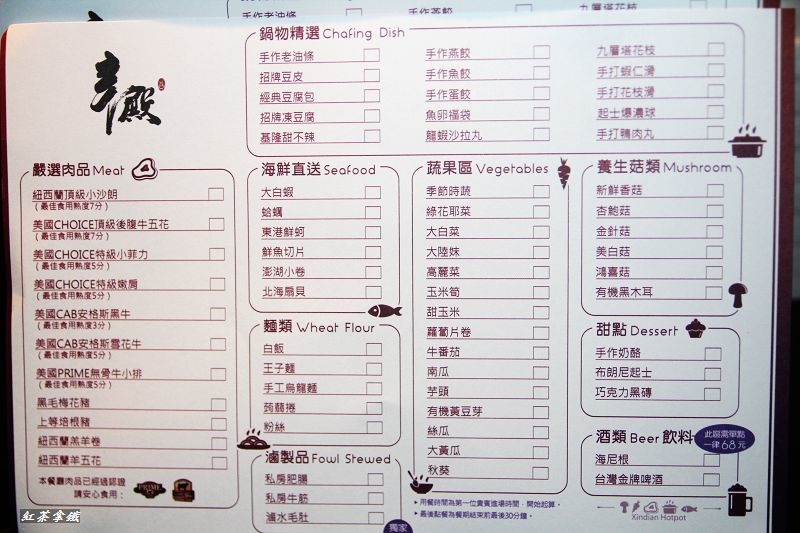 老油條
手作燕餃
九層塔花枝
辛殿
鍋物精選 Chafing Dish
手作老油條
招牌豆皮
經典豆腐包
招牌凍豆腐
基隆甜不辣
手作燕餃
手作魚餃
手作蛋餃
魚卵福袋
龍蝦沙拉丸
九層塔花枝
手打蝦仁滑
手打花枝滑
起士爆濃球
手打鴨肉丸
嚴選肉品 Meat
紐西蘭頂級小沙朗
(最佳食用熟度7分)
美國CHOICE頂級後腹牛五花
(最佳食用熟度7分)
美國CHOICE特級小菲力
(最佳食用熟度5分)
美國CHOICE特級嫩肩
(最佳食用熟度5分)
美國CAB安格斯黑牛
(最佳食用熟度3分)
美國CAB安格斯雪花牛
(最佳食用熟度5分)
美國PRIME無骨牛小排
(最佳食用熟度5分)
黑毛梅花豬
上等培根豬
紐西蘭羔羊卷
紐西蘭羊五花
本餐廳肉品已經過認證
請安心食用：
PRIME
海鮮直送 Seafood
大白蝦
蛤蠣
東港鮮蚵
鮮魚切片
澎湖小卷
北海扇貝
麵類 Wheat Flour
白飯
王子麵
手工烏龍麵
蒟蒻捲
粉絲
滷製品 Fowl Stewed
私房肥腸
私房牛筋
滷水毛肚
獨家
蔬果區 Vegetables
季節時蔬
綠花耶菜
大白菜
大陸妹
高麗菜
玉米筍
甜玉米
蘿蔔片卷
牛番茄
南瓜
芋頭
有機黃豆芽
絲瓜
大黃瓜
秋葵
養生菇類 Mushroom
新鮮香菇
杏鮑菇
金針菇
美白菇
鴻喜菇
有機黑木耳
甜點 Dessert
手作奶酪
布朗尼起士
巧克力黑磚
酒類 Beer 飲料
此區需單點
一律68元
海尼根
台灣金牌啤酒
用餐時間為第一位貴賓進場時間，開始起算。
最後點餐為餐期結束前最後30分鐘。
Xindian Hotpot
紅茶拿鐵